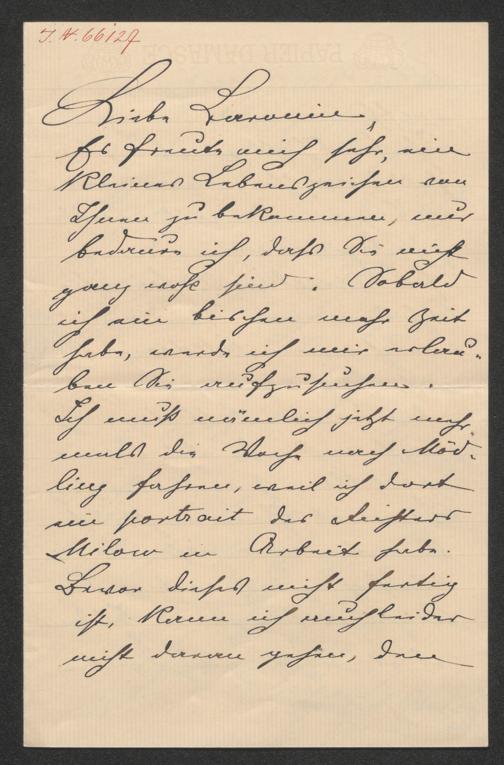 J. N. 66127
PAPIER DAMASCÉ
Liebe Baronin,
Es freute mich sehr, ein
kleines Lebenszeichen von
Ihnen zu bekommen, nur
bedaure ich, daß Sie nicht
ganz wohl sind. Sobald
ich ein bischen mehr Zeit
habe, werde ich mir erlau-
ben Sie aufzusuchen.
Ich muß nämlich jetzt mehr-
mals die Woche nach Möd-
ling fahren, weil ich dort
ein portrait des Dichters
Milow in Arbeit habe.
Bevor dieses nicht fertig
ist, kann ich auch leider
nicht daran gehen, den